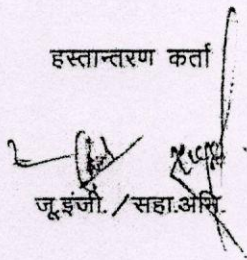 हस्तान्तरण कर्ता
जू.इंजी. / सहा.अभि.